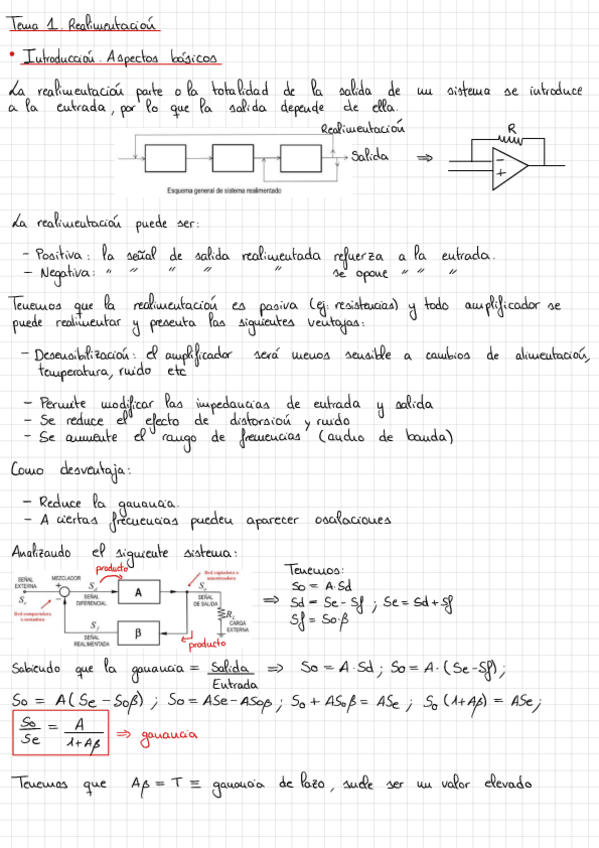 Tema 1. Realimentación
• Introducción. Aspectos básicos
La realimentación parte o la totalidad de la salida de un sistema se introduce
a la entrada, por lo que la salida depende de ella.
Realimentación
Salida
⇒
R
-
+
Esquema general de sistema realimentado
La realimentación puede ser:
- Positiva: la señal de salida realimentada refuerza a la entrada.
- Negativa: " " " " " se opone " " "
Tenemos que la realimentación es pasiva (ej: resistencias) y todo amplificador se
puede realimentar y presenta las siguientes ventajas:
- Desensibilización: el amplificador será menos sensible a cambios de alimentación,
temperatura, ruido etc
- Permite modificar las impedancias de entrada y salida
- Se reduce el efecto de distorsión y ruido
- Se aumente el rango de frecuencias (ancho de banda)
Como desventaja:
- Reduce la ganancia.
- A ciertas frecuencias pueden aparecer oscalaciones
Analizando el siguiente sistema:
producto
SEÑAL
EXTERNA
MEZCLADOR
+
-
SEÑAL
DIFERENCIAL
A
SEÑAL
DE SALIDA
CARGA
EXTERNA
SEÑAL
REALIMENTADA
β
producto
Tenemos:
So = A·Sd
⇒ Sd = Se - Sf ; Se = Sd + Sf
Sf = So·β
Sabiendo que la ganancia = Salida / Entrada ⇒ So = A·Sd ; So = A·(Se-Sf);
So = A(Se - Soβ) ; So = ASe - ASoβ ; So + ASoβ = ASe ; So (1+Aβ) = ASe;
So / Se = A / 1+Aβ ⇒ ganancia
Tenemos que Aβ = T ≡ ganancia de lazo, suele ser un valor elevado